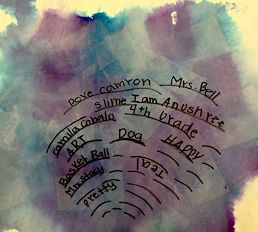 Dove camron
Mrs. Bell
slime I am Anushree
camila Cabalo
4th Grade
ART
Dog
HAPPY
Basket Ball
Teal
Mrs. Stacy
pretty